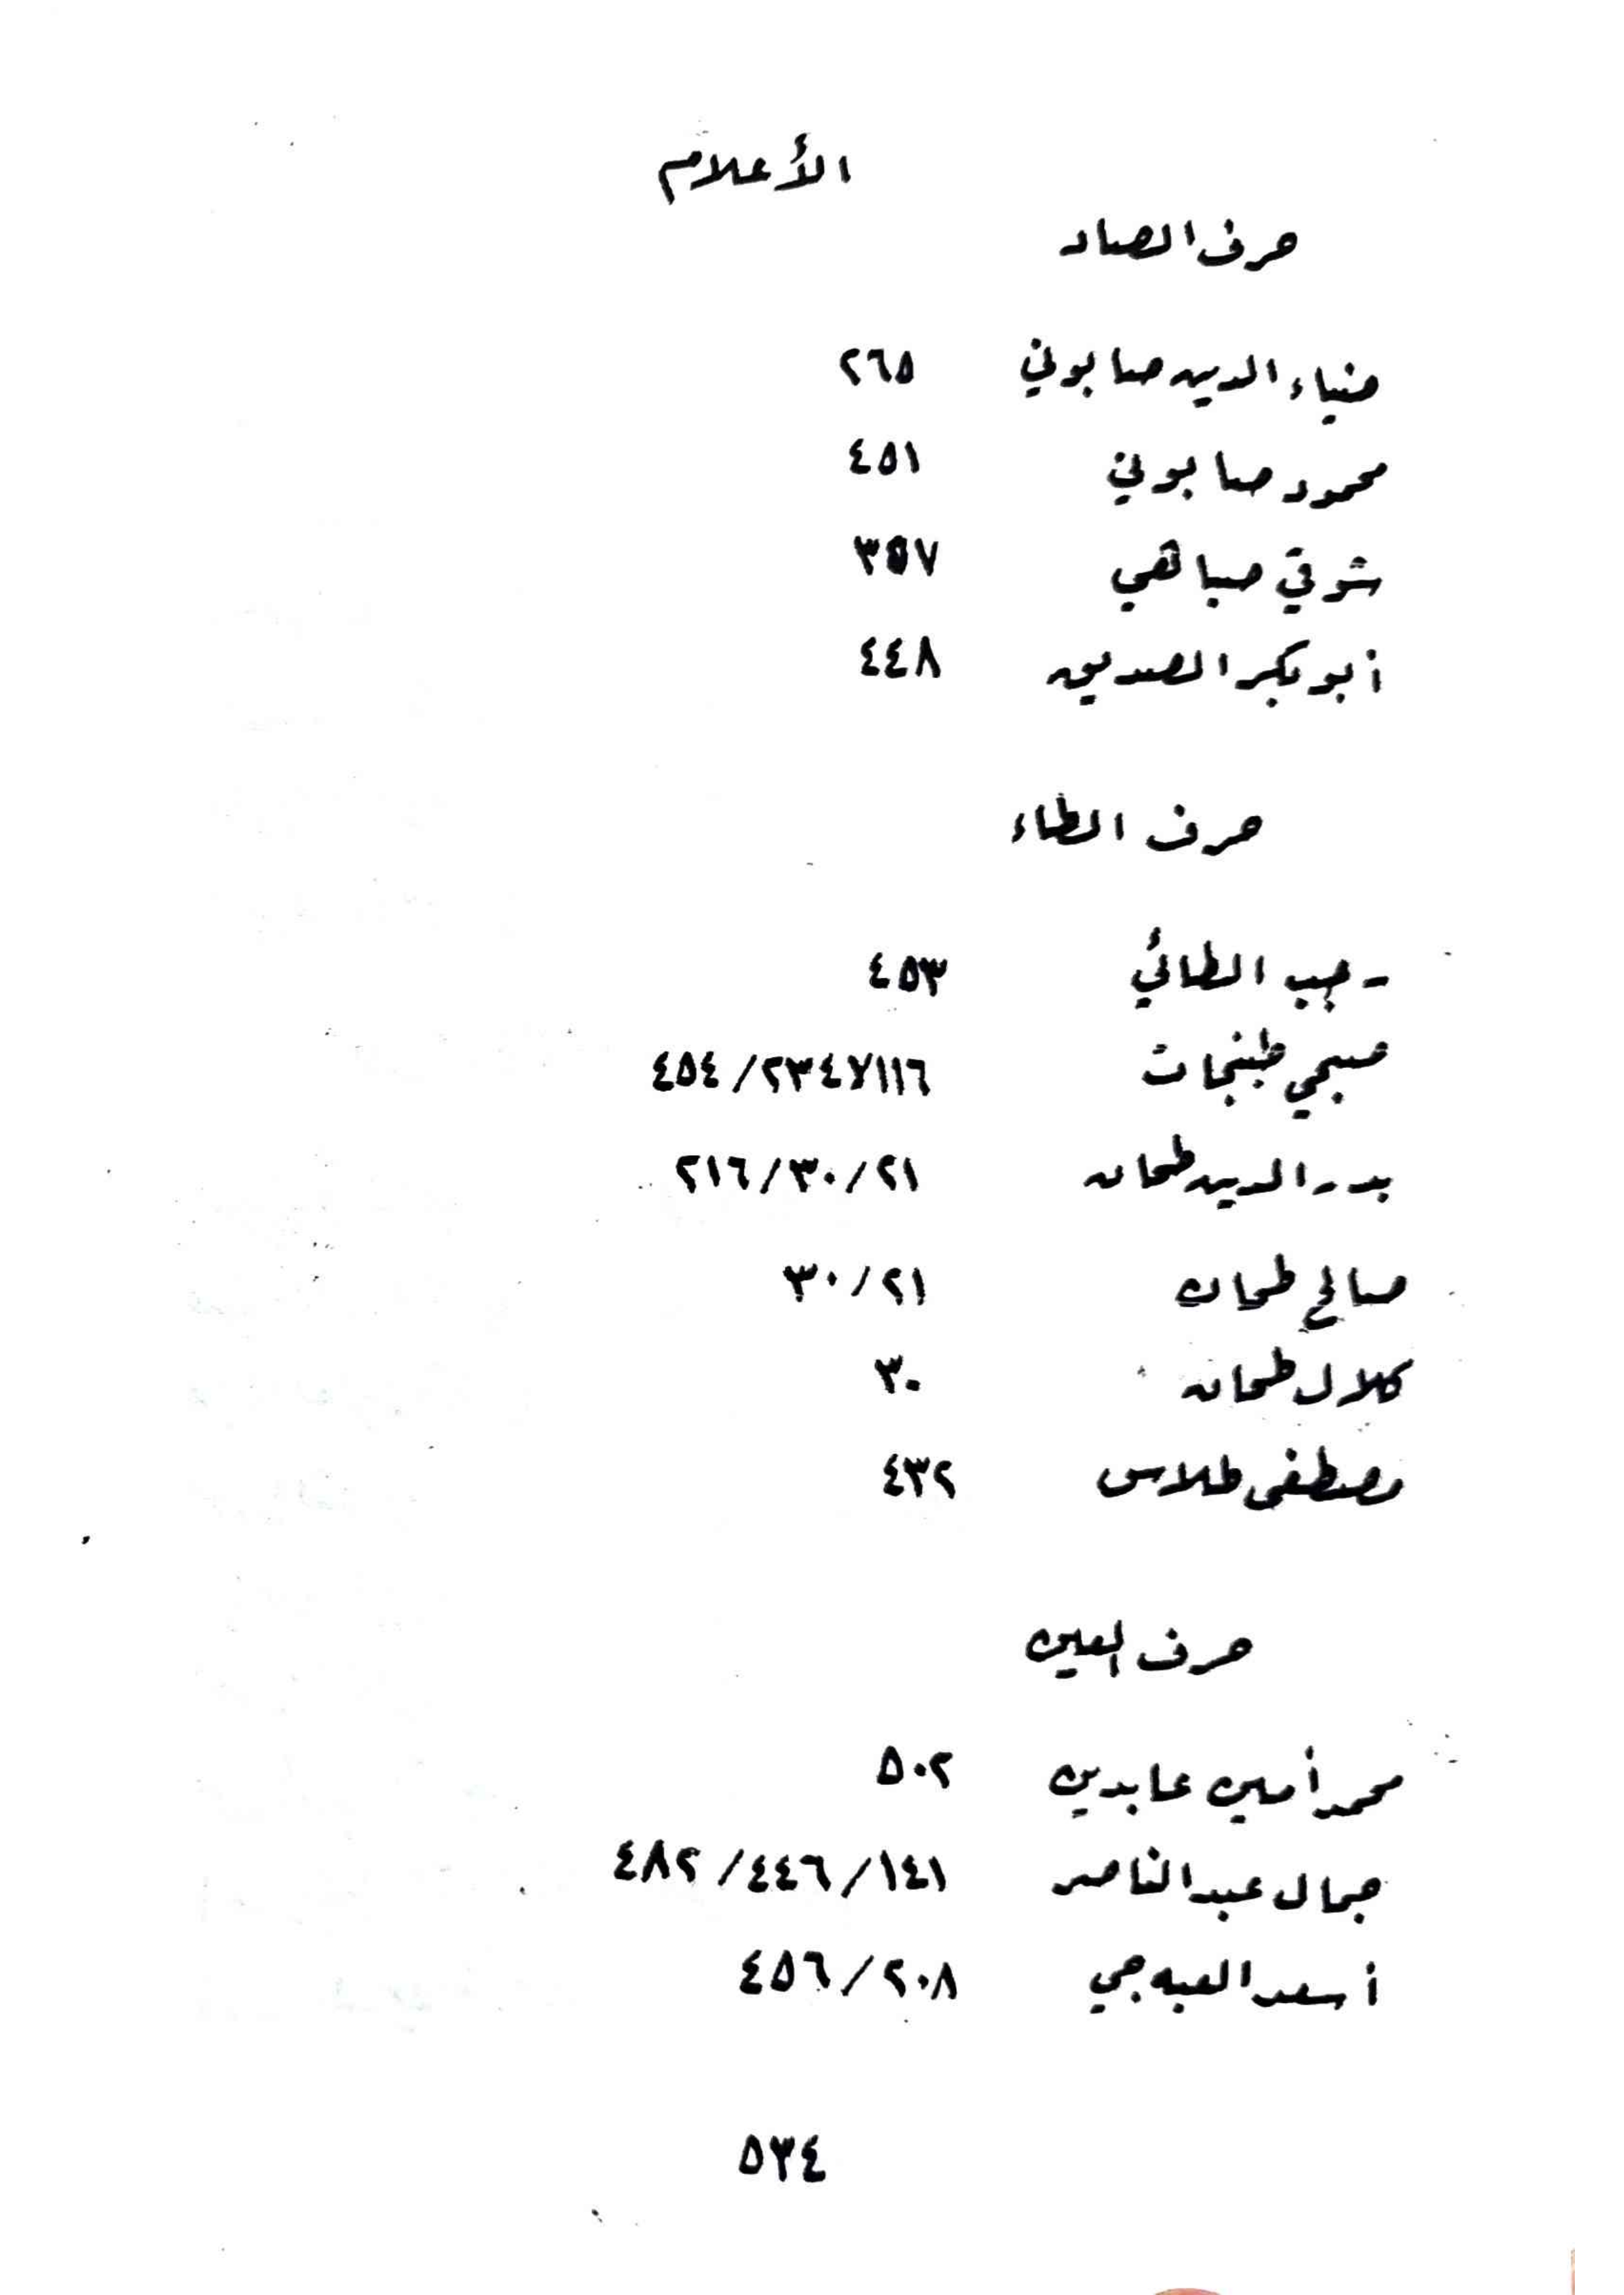 الأعلام
حرف الصاد
ضياء الدين صابوني ٢٦٥
محمود صابوني ٤٥١
شوقي صباهي ٣٥٧
أبو بكر الصديق ٤٤٨
حرف الطاء
رجب الطائي ٤٥٣
صبحي طبنجات ٤٥٤/٢٣٤٧١١١٦
بدر الدين طحان ٢١٦/٣٠/٢١
صالح طحان ٣٠/٢١
كلال طحان ٣٠
مصطفى طلاس ٤٣٢
حرف العين
محمد أمين عابدين ٥٠٢
جمال عبد الناصر ٤٨٢/٤٤٦/١٤١
أسعد العبه جي ٤٥٦/٢٠٨
٥٣٤